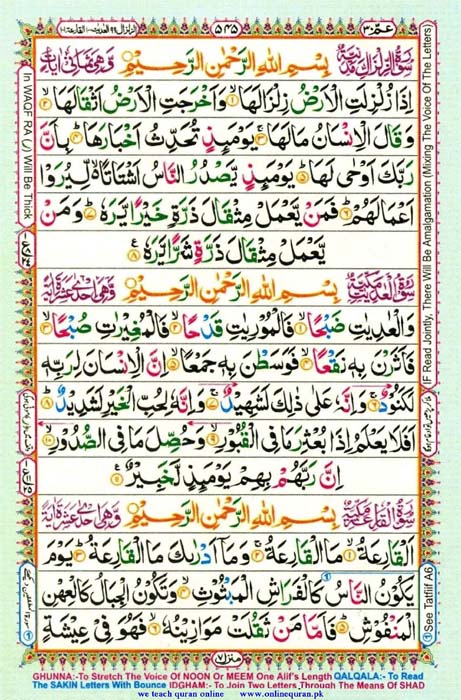 الزلزال ٩٩ العديت ١٠٠ القارعة ١٠١
٥٤٥
عمّ ٣٠
سُوْرَةُ الزِّلْزَالِ مَدَنِيَّةٌ بِسْمِ اللهِ الرَّحْمٰنِ الرَّحِيْمِ وَهِيَ ثَمَانِيْ اٰيَاتٍ
اِذَا زُلْزِلَتِ الْاَرْضُ زِلْزَالَهَا ۙ﴿۱﴾ وَاَخْرَجَتِ الْاَرْضُ اَثْقَالَهَا ۙ﴿۲﴾
وَقَالَ الْاِنْسَانُ مَا لَهَا ۚ﴿۳﴾ يَوْمَئِذٍ تُحَدِّثُ اَخْبَارَهَا ۙ﴿۴﴾ بِاَنَّ
رَبَّكَ اَوْحٰى لَهَا ؕ﴿۵﴾ يَوْمَئِذٍ يَّصْدُرُ النَّاسُ اَشْتَاتًا ۙ لِّيُرَوْا
اَعْمَالَهُمْ ؕ﴿۶﴾ فَمَنْ يَّعْمَلْ مِثْقَالَ ذَرَّةٍ خَيْرًا يَّرَهٗ ؕ﴿۷﴾ وَمَنْ
يَّعْمَلْ مِثْقَالَ ذَرَّةٍ شَرًّا يَّرَهٗ ﴿۸﴾
سُوْرَةُ الْعٰدِيٰتِ مَكِّيَّةٌ بِسْمِ اللهِ الرَّحْمٰنِ الرَّحِيْمِ وَهِيَ اِحْدٰى عَشْرَةَ اٰيَةً
وَالْعٰدِيٰتِ ضَبْحًا ۙ﴿۱﴾ فَالْمُوْرِيٰتِ قَدْحًا ۙ﴿۲﴾ فَالْمُغِيْرٰتِ صُبْحًا ۙ﴿۳﴾
فَاَثَرْنَ بِهٖ نَقْعًا ۙ﴿۴﴾ فَوَسَطْنَ بِهٖ جَمْعًا ۙ﴿۵﴾ اِنَّ الْاِنْسَانَ لِرَبِّهٖ
لَكَنُوْدٌ ۚ﴿۶﴾ وَاِنَّهٗ عَلٰى ذٰلِكَ لَشَهِيْدٌ ۚ﴿۷﴾ وَاِنَّهٗ لِحُبِّ الْخَيْرِ لَشَدِيْدٌ ؕ﴿۸﴾
اَفَلَا يَعْلَمُ اِذَا بُعْثِرَ مَا فِى الْقُبُوْرِ ۙ﴿۹﴾ وَحُصِّلَ مَا فِى الصُّدُوْرِ ۙ﴿۱۰﴾
اِنَّ رَبَّهُمْ بِهِمْ يَوْمَئِذٍ لَّخَبِيْرٌ ﴿۱۱﴾
سُوْرَةُ الْقَارِعَةِ مَكِّيَّةٌ بِسْمِ اللهِ الرَّحْمٰنِ الرَّحِيْمِ وَهِيَ اِحْدٰى عَشْرَةَ اٰيَةً
اَلْقَارِعَةُ ۙ﴿۱﴾ مَا الْقَارِعَةُ ۚ﴿۲﴾ وَمَاۤ اَدْرٰىكَ مَا الْقَارِعَةُ ؕ﴿۳﴾ يَوْمَ
يَكُوْنُ النَّاسُ كَالْفَرَاشِ الْمَبْثُوْثِ ۙ﴿۴﴾ وَتَكُوْنُ الْجِبَالُ كَالْعِهْنِ
الْمَنْفُوْشِ ؕ﴿۵﴾ فَاَمَّا مَنْ ثَقُلَتْ مَوَازِيْنُهٗ ۙ﴿۶﴾ فَهُوَ فِيْ عِيْشَةٍ
منزل ٧
In WAQF RA (ر) Will Be Thick
IF Read Jointly, There Will Be Amalgamation (Mixing The Voice Of The Letters)
① See Tatfif A6
GHUNNA:-To Stretch The Voice Of NOON Or MEEM One Alif's Length QALQALA:- To Read
The SAKIN Letters With Bounce IDGHAM:- To Join Two Letters Through The Means Of SHAD
we teach quran online www.onlinequran.pk